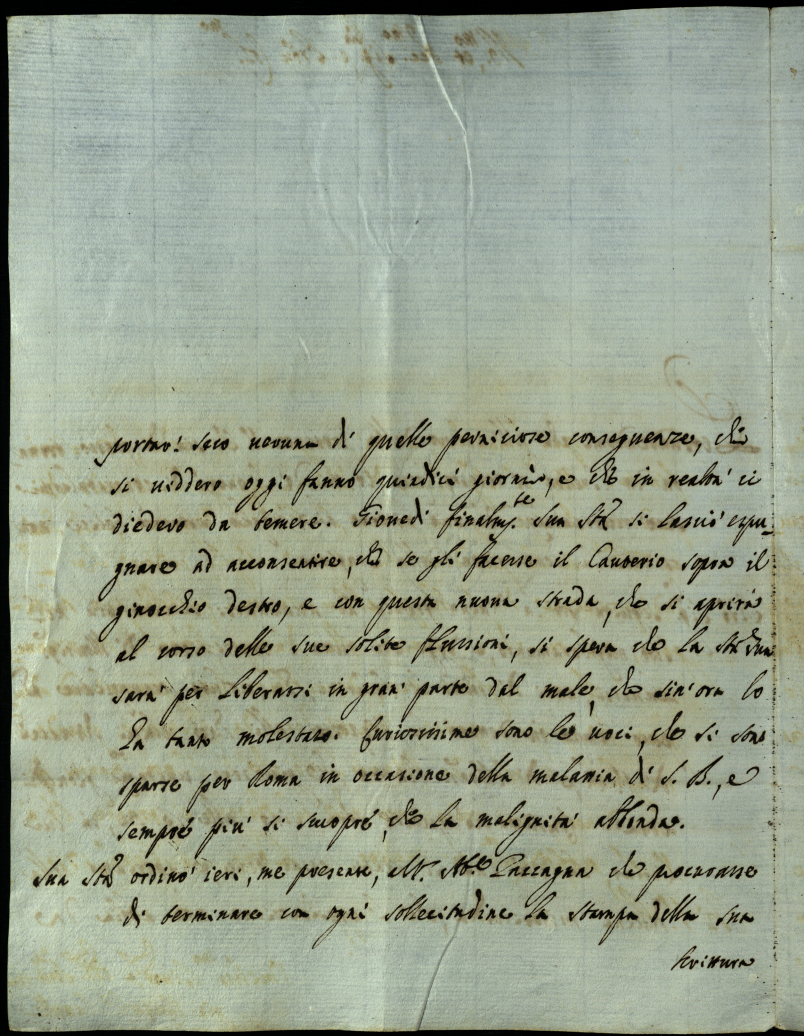 portar seco veruna di quelle perniciose conseguenze, che
si viddero oggi fanno quindici giorni, e che in realtà ci
diedero da temere. Giovedì finalm.te Sua Stà si lasciò espu-
gnare ad acconsentire, che se gli facesse il Cauterio sopra il
ginocchio destro, e con questa nuova strada, che si aprirà
al corso delle sue solite flussioni, si spera che la Stà Sua
sarà per liberarsi in gran parte dal male, che sin'ora lo
ha tanto molestato. Curiosissime sono le voci, che si sono
sparse per Roma in occasione della malattia di S. B., e
sempre più si scuopre, che la malignità abbonda.
Sua Stà ordinò ieri, me presente, all' Ab.e che procurasse
di terminare con ogni sollecitudine la stampa della sua
scrittura